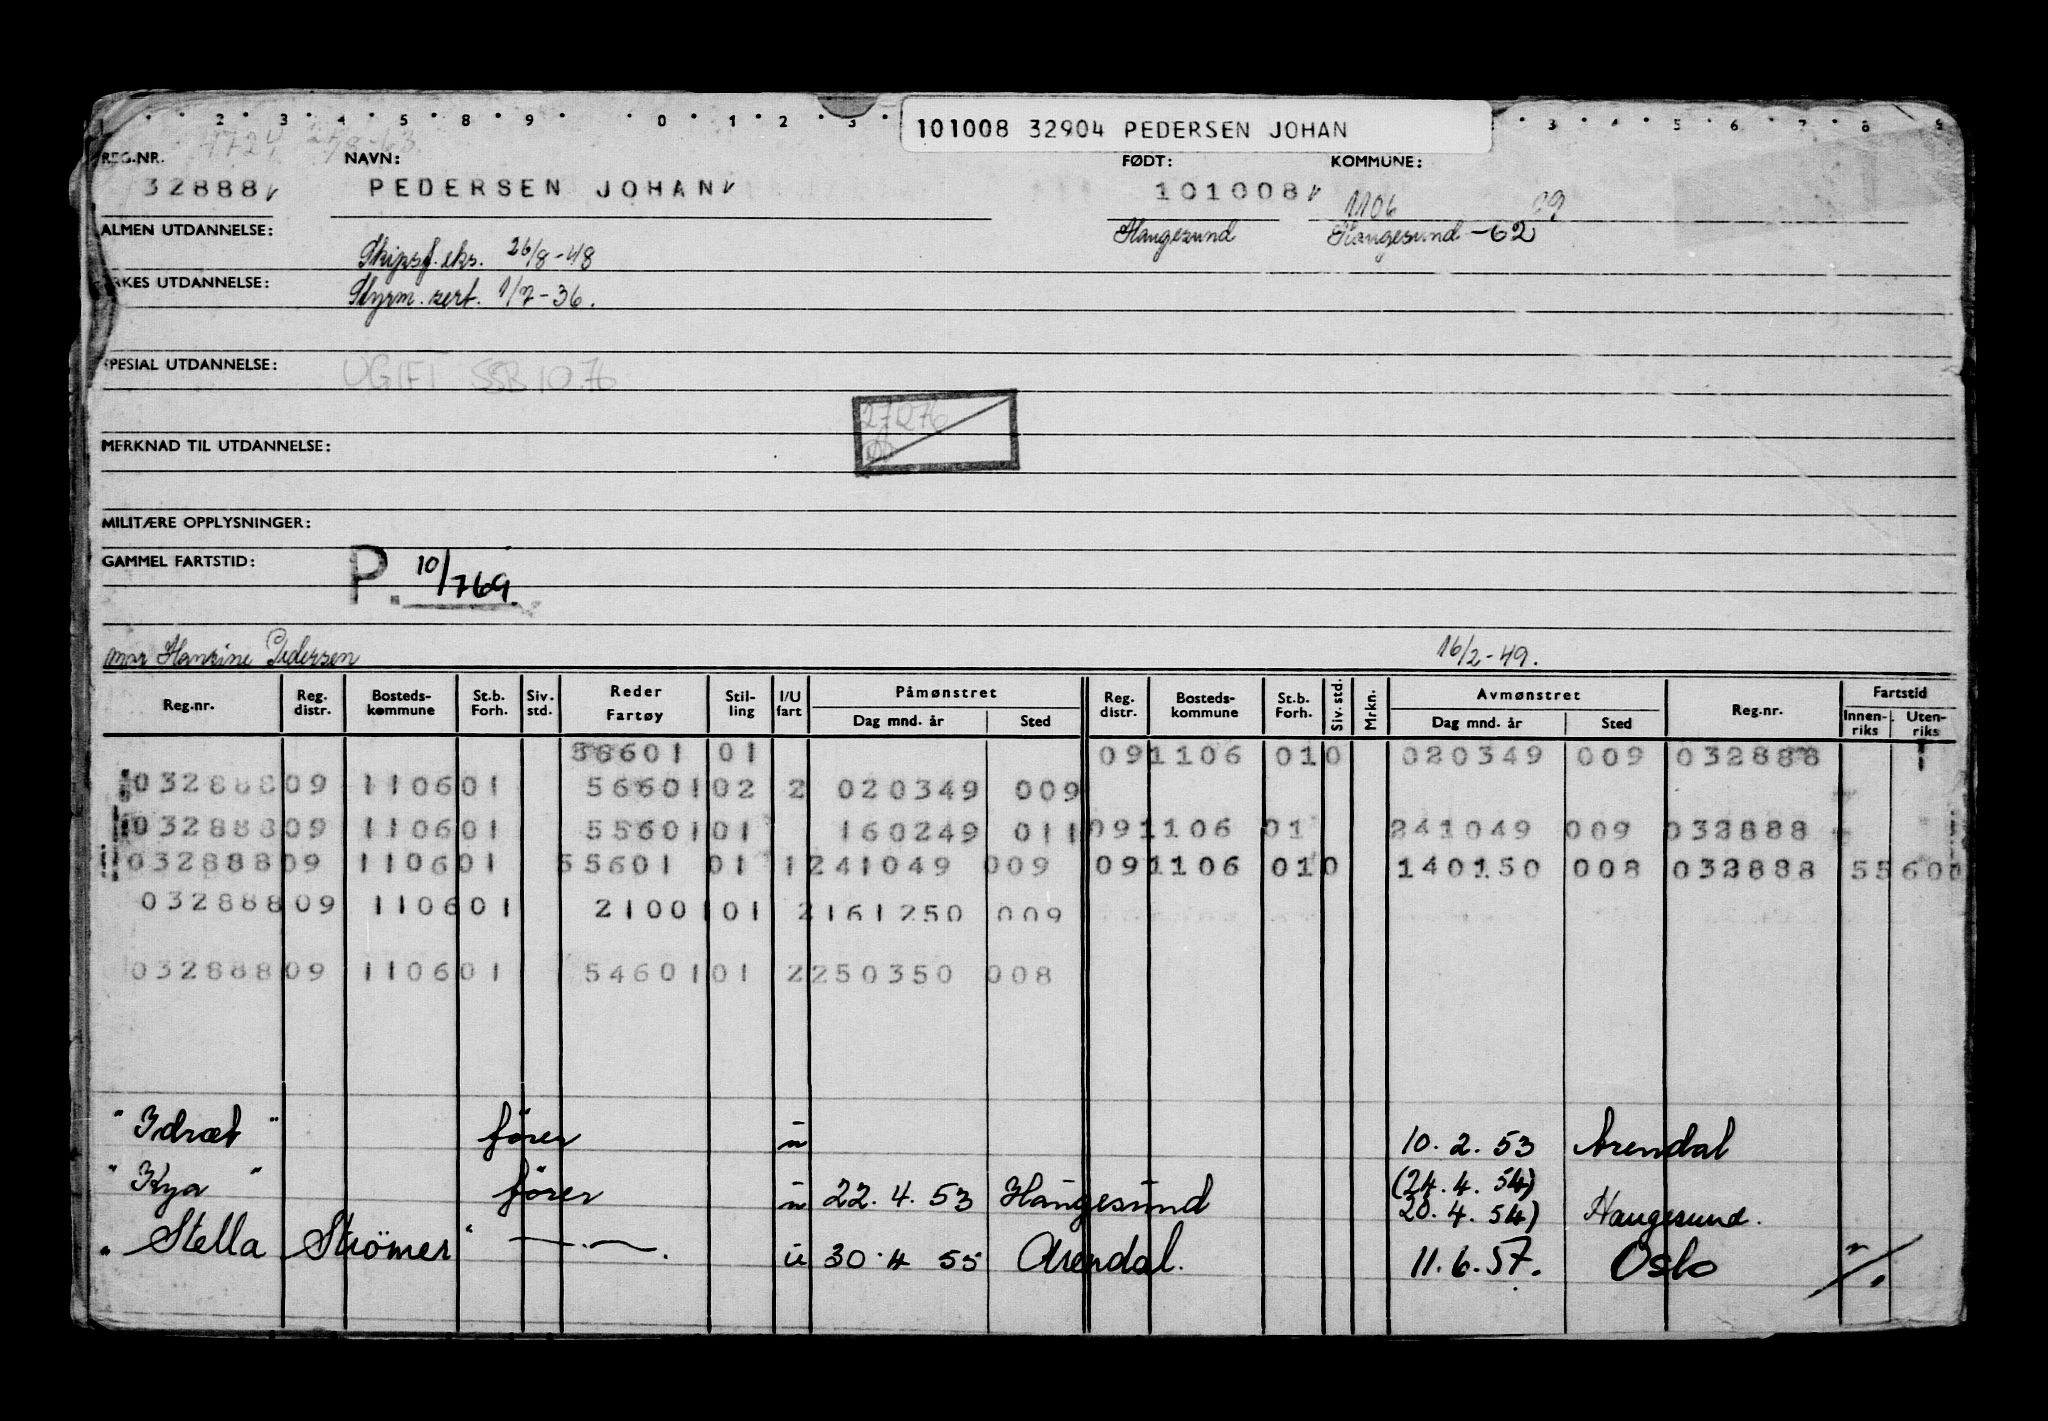 101008 32904 PEDERSEN JOHAN
REG.NR. NAVN: FØDT: KOMMUNE:
32888 PEDERSEN JOHAN 101008 1106 09
ALMEN UTDANNELSE: Haugesund Haugesund -62
Skipsf. eks. 26/8-48
YRKES UTDANNELSE: Styrm. sert. 1/7-36.
SPESIAL UTDANNELSE: UGIFT SSB 10.76
27276
MERKNAD TIL UTDANNELSE:
MILITÆRE OPPLYSNINGER:
GAMMEL FARTSTID: P. 10/769.
mor Hansine Pedersen 16/2-49.
Reg.nr. Reg. distr. Bosteds-kommune St.b. Forh. Siv. std. Reder Fartøy Stil-ling I/U fart Påmønstret Dag mnd. år Sted Reg. distr. Bosteds-kommune St.b. Forh. Siv. std. Mrkn. Avmønstret Dag mnd. år Sted Reg.nr. Fartstid Innen-riks Uten-riks
56601 01 09 1106 01 0 020349 009 032888
032888 09 1106 01 56601 02 2 020349 009
032888 09 1106 01 55601 01 160249 011 09 1106 01 241049 009 032888
032888 09 1106 01 55601 01 1 241049 009 09 1106 01 0 140150 008 032888 55601
032888 09 1106 01 21001 01 2 161250 009
032888 09 1106 01 54601 01 2 250350 008
"Idræt" fører u 10.2.53 Arendal
"Kya" fører u 22.4.53 Haugesund (24.4.54) 20.4.54) Haugesund.
"Stella Strömer" —.—. u 30.4 55 Arendal. 11.6.57. Oslo